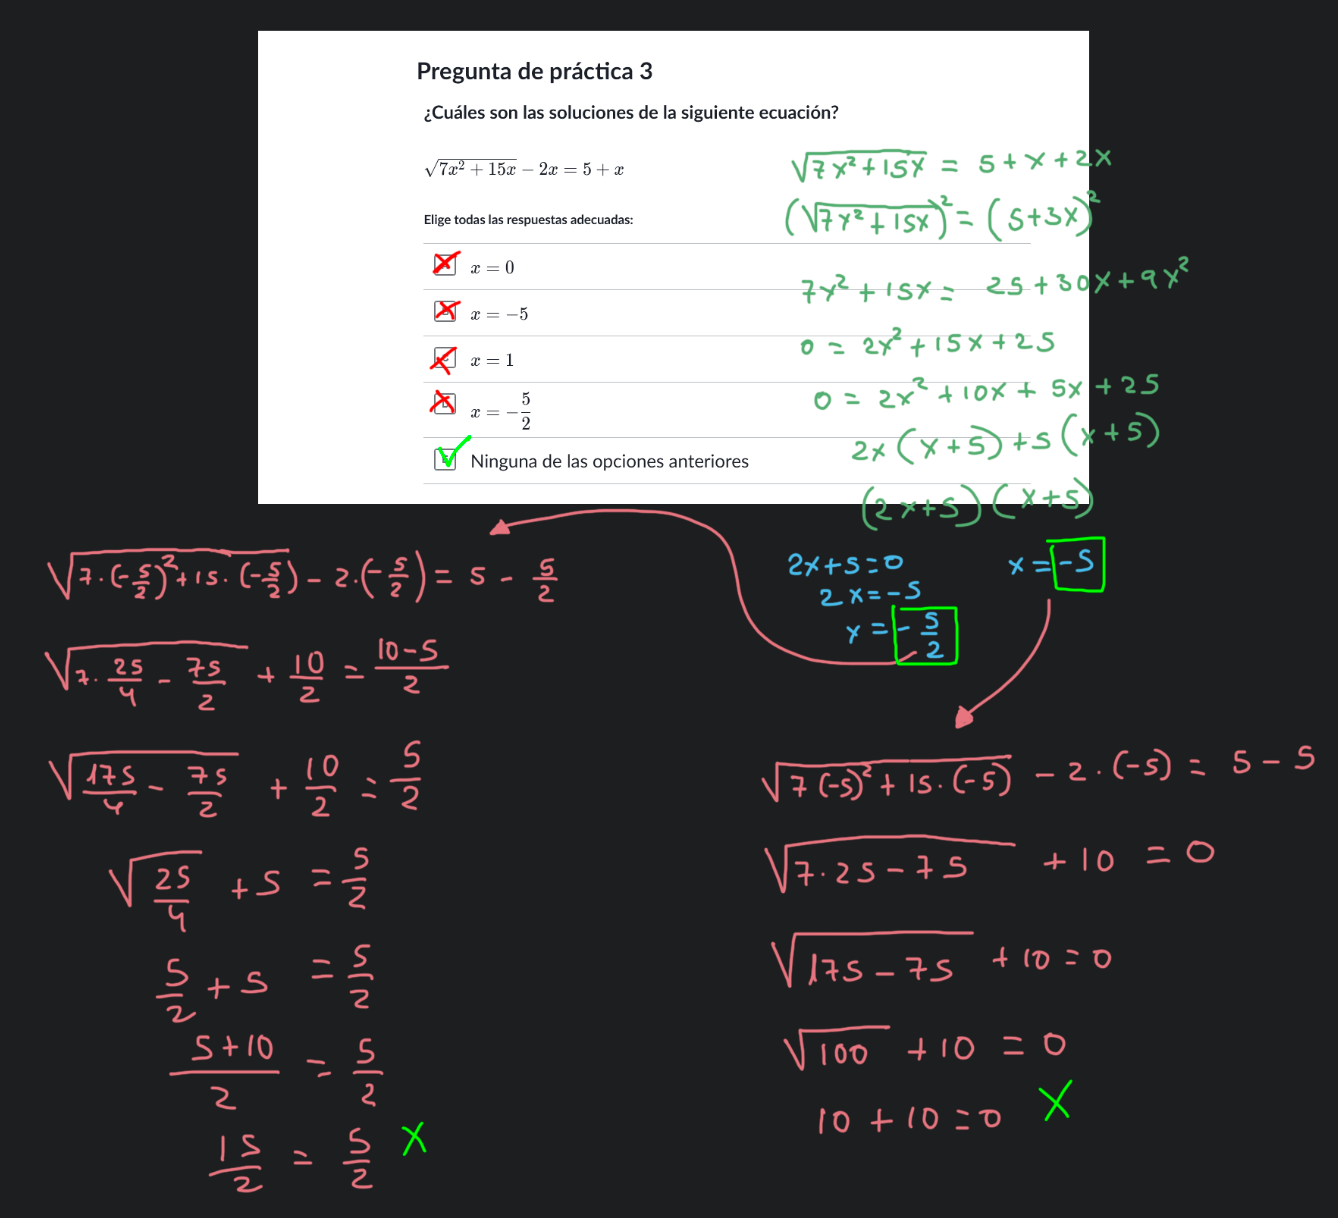 Pregunta de práctica 3
¿Cuáles son las soluciones de la siguiente ecuación?
√(7x² + 15x) − 2x = 5 + x
Elige todas las respuestas adecuadas:
x = 0
x = −5
x = 1
x = −5/2
Ninguna de las opciones anteriores
√(7x² + 15x) = 5 + x + 2x
(√(7x² + 15x))² = (5+3x)²
7x² + 15x = 25 + 30x + 9x²
0 = 2x² + 15x + 25
0 = 2x² + 10x + 5x + 25
2x (x+5) + 5 (x+5)
(2x+5) (x+5)
2x+5=0
2x=-5
x = -5/2
x = -5
√(7·(-5/2)² + 15·(-5/2)) - 2·(-5/2) = 5 - 5/2
√(7·25/4 - 75/2) + 10/2 = (10-5)/2
√(175/4 - 75/2) + 10/2 = 5/2
√(25/4) + 5 = 5/2
5/2 + 5 = 5/2
(5+10)/2 = 5/2
15/2 = 5/2 X
√(7(-5)² + 15·(-5)) - 2·(-5) = 5 - 5
√(7·25 - 75) + 10 = 0
√(175 - 75) + 10 = 0
√100 + 10 = 0
10 + 10 = 0 X